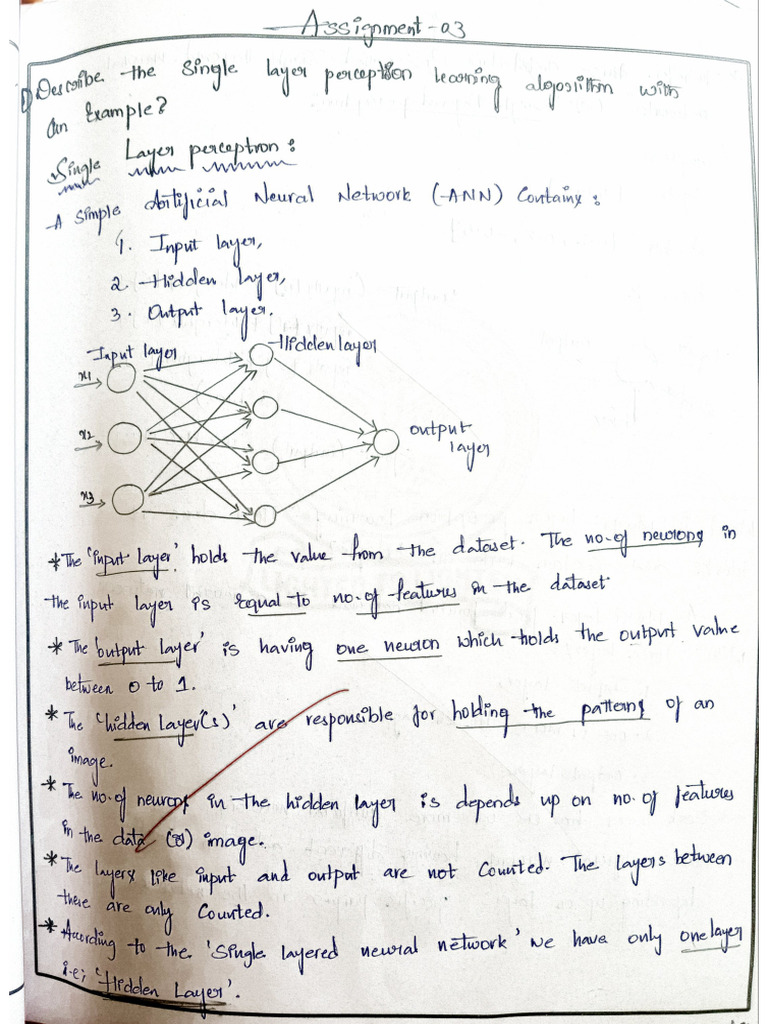 Assignment-03
1) Describe the single layer perception learning algorithm with
an Example?
Single Layer perceptron:
A simple Artificial Neural Network (ANN) Contains:
1. Input layer,
2. Hidden layer,
3. Output layer.
Input layer
Hidden layer
x1
x2
output
layer
x3
* The 'input layer' holds the value from the dataset. The no. of neurons in
the input layer is equal to no. of features in the dataset.
* The 'output layer' is having one neuron which holds the output value
between 0 to 1.
* The 'hidden layer(s)' are responsible for holding the patterns of an
image.
* The no. of neurons in the hidden layer is depends up on no. of features
in the data (or) image.
* The layers like input and output are not Counted. The layers between
these are only Counted.
* According to the 'Single layered neural network' we have only one layer
i.e; 'Hidden Layer'.